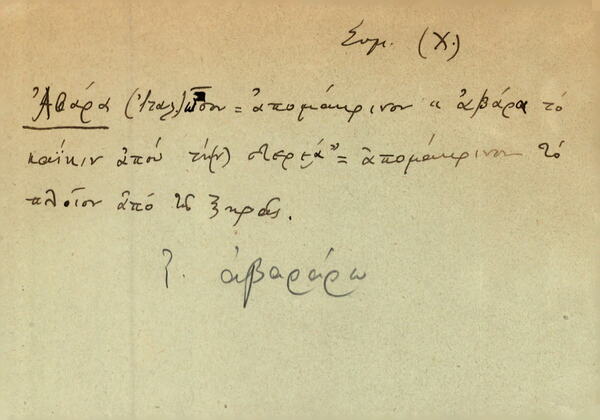 Συμ. (Χ.)
Ἀβάρα (Ἰταλ.) = ἀπομάκρινον "ἀβάρα τὸ
καΐκιν ἀποὺ τὴ(ν) στερεά" = ἀπομάκρινον τὸ
πλοῖον ἀπὸ τῆς ξηρᾶς.
ἀβαράρω